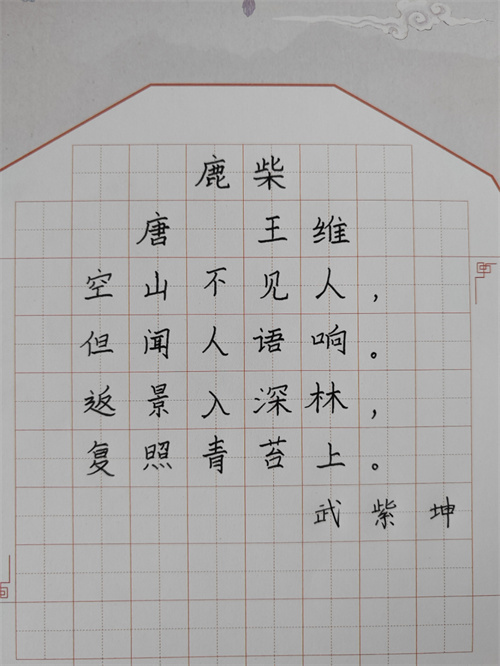 鹿柴
唐 王维
空山不见人，
但闻人语响。
返景入深林，
复照青苔上。
武紫坤